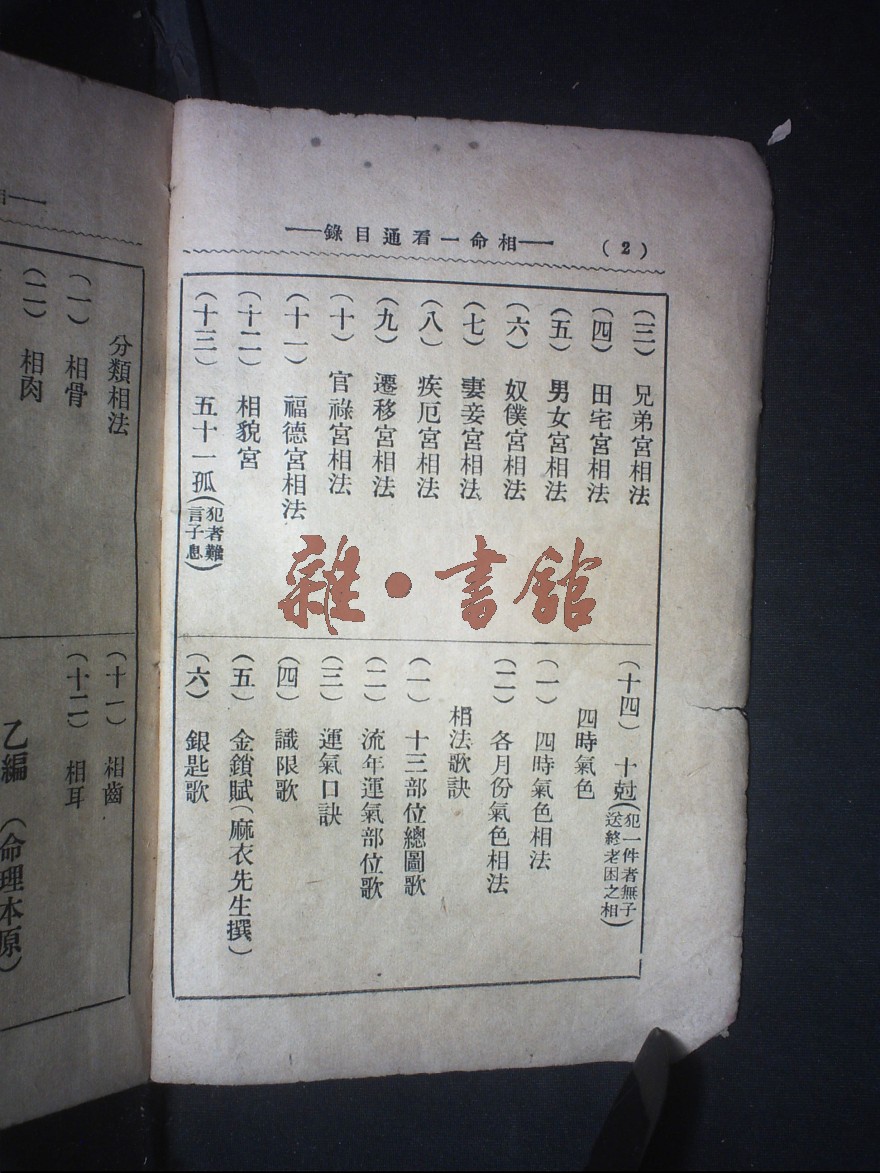 (2)
──相命一看通目錄──
(三) 兄弟宮相法
(四) 田宅宮相法
(五) 男女宮相法
(六) 奴僕宮相法
(七) 妻妾宮相法
(八) 疾厄宮相法
(九) 遷移宮相法
(十) 官祿宮相法
(十一) 福德宮相法
(十二) 相貌宮
(十三) 五十一孤(犯者難言子息)
(十四) 十尅(犯一件者無子送終老困之相)
四時氣色
(一) 四時氣色相法
(二) 各月份氣色相法
相法歌訣
(一) 十三部位總圖歌
(二) 流年運氣部位歌
(三) 運氣口訣
(四) 識限歌
(五) 金鎖賦(麻衣先生撰)
(六) 銀匙歌
分類相法
(一) 相骨
(二) 相肉
(十一) 相齒
(十二) 相耳
乙編 (命理本原)
雜·書館